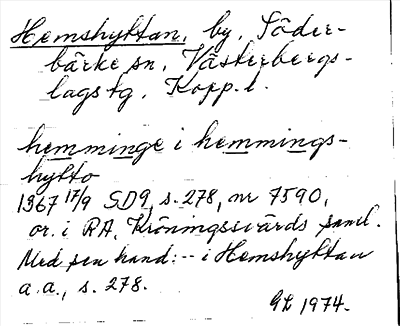 Hemshyttan, by, Söder-
bärke sn, Västerbergs-
lags tg, Kopp. l.
hemminge i hemmings-
hytto
1367 17/9 SD9, s. 278, nr 7590,
or. i RA, Kröningssvärds saml.
Med sen hand: -- i Hemshyttan
a.a., s. 278.
GL 1974.